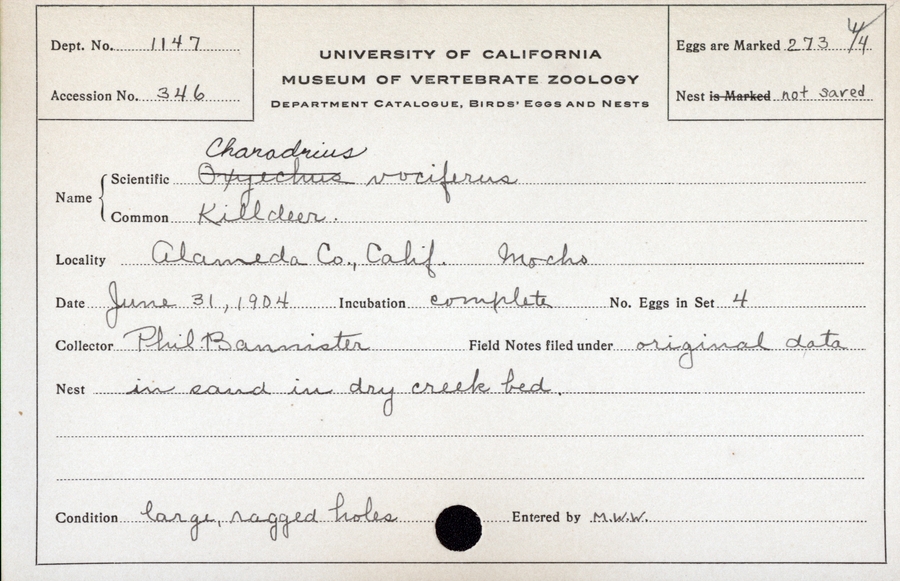 Dept. No. 1147
UNIVERSITY OF CALIFORNIA
MUSEUM OF VERTEBRATE ZOOLOGY
DEPARTMENT CATALOGUE, BIRDS' EGGS AND NESTS
Eggs are Marked 273 4/4
Accession No. 346
Nest is Marked not saved
Charadrius
Name Scientific Oxyechus vociferus
Common Killdeer.
Locality Alameda Co., Calif. Mocho
Date June 31, 1904 Incubation complete No. Eggs in Set 4
Collector Phil Bannister Field Notes filed under original data
Nest in sand in dry creek bed.
Condition large, ragged holes Entered by M.W.W.